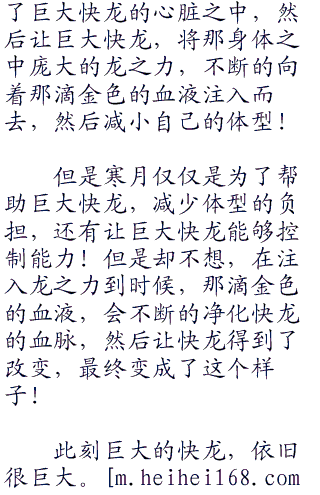 了巨大快龙的心脏之中，然
后让巨大快龙，将那身体之
中庞大的龙之力，不断的向
着那滴金色的血液注入而
去，然后减小自己的体型！
但是寒月仅仅是为了帮
助巨大快龙，减少体型的负
担，还有让巨大快龙能够控
制能力！但是却不想，在注
入龙之力到时候，那滴金色
的血液，会不断的净化快龙
的血脉，然后让快龙得到了
改变，最终变成了这个样
子！
此刻巨大的快龙，依旧
很巨大。[m.heihei168.com